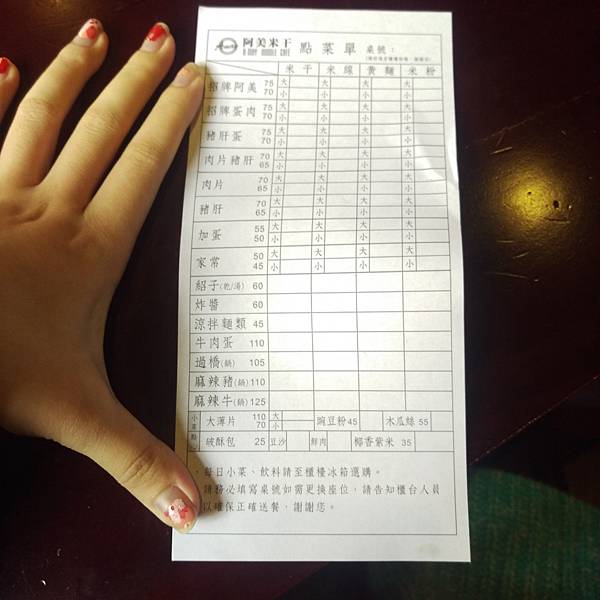 阿美米干 點菜單 桌號：
A MAY NOODLE CAFE
米干 米線 黃麵 米粉
招牌阿美 75 大 大 大 大
70 小 小 小 小
招牌蛋肉 75 大 大 大 大
70 小 小 小 小
豬肝蛋 75 大 大 大 大
70 小 小 小 小
肉片豬肝 70 大 大 大 大
65 小 小 小 小
肉片 70 大 大 大 大
65 小 小 小 小
豬肝 70 大 大 大 大
65 小 小 小 小
加蛋 55 大 大 大 大
50 小 小 小 小
家常 50 大 大 大 大
45 小 小 小 小
紹子(乾/湯) 60
炸醬 60
涼拌麵類 45
牛肉蛋 110
過橋(鍋) 105
麻辣豬(鍋) 110
麻辣牛(鍋) 125
小菜點 大薄片 110 大 豌豆粉 45 木瓜絲 55
70 小
破酥包 25 豆沙 鮮肉 椰香紫米 35
每日小菜、飲料請至櫃檯冰箱選購。
請務必填寫桌號如需更換座位，請告知櫃台人員
以確保正確送餐，謝謝您。